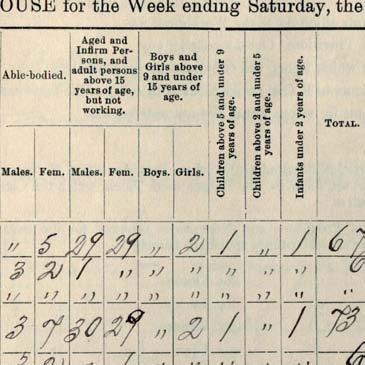 OUSE for the Week ending Saturday, the
Able-bodied. Aged and Infirm Persons, and adult persons above 15 years of age, but not working. Boys and Girls above 9 and under 15 years of age. Children above 5 and under 9 years of age. Children above 2 and under 5 years of age. Infants under 2 years of age. TOTAL.
Males. Fem. Males. Fem. Boys. Girls.
" 5 29 29 " 2 1 " 1 67
3 2 1 " " " " " " 6
" " " " " " " " " "
3 7 30 29 " 2 1 " 1 73